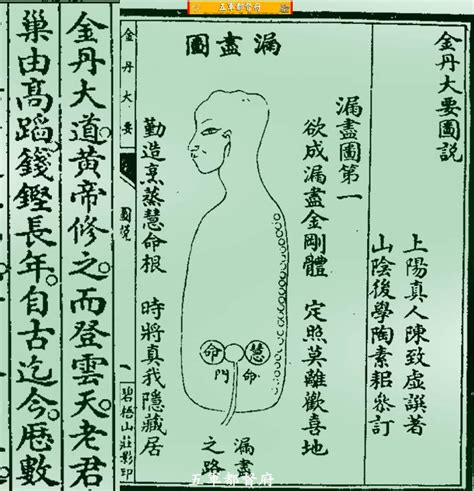 五軍都督府
金丹大要圖說
上陽真人陳致虛譔著
山陰後學陶素耜叅訂
漏盡圖
漏盡圖第一
欲成漏盡金剛體 定照莫離歡喜地
慧
命
命門
漏盡
之路
勤造烹蒸慧命根 時將真我隱藏居
金丹大要
圖說
一
碧梧山莊影印
金丹大道。黃帝修之。而登雲天。老君
巢由高蹈。錢鏗長年。自古迄今。曆數
五軍都督府